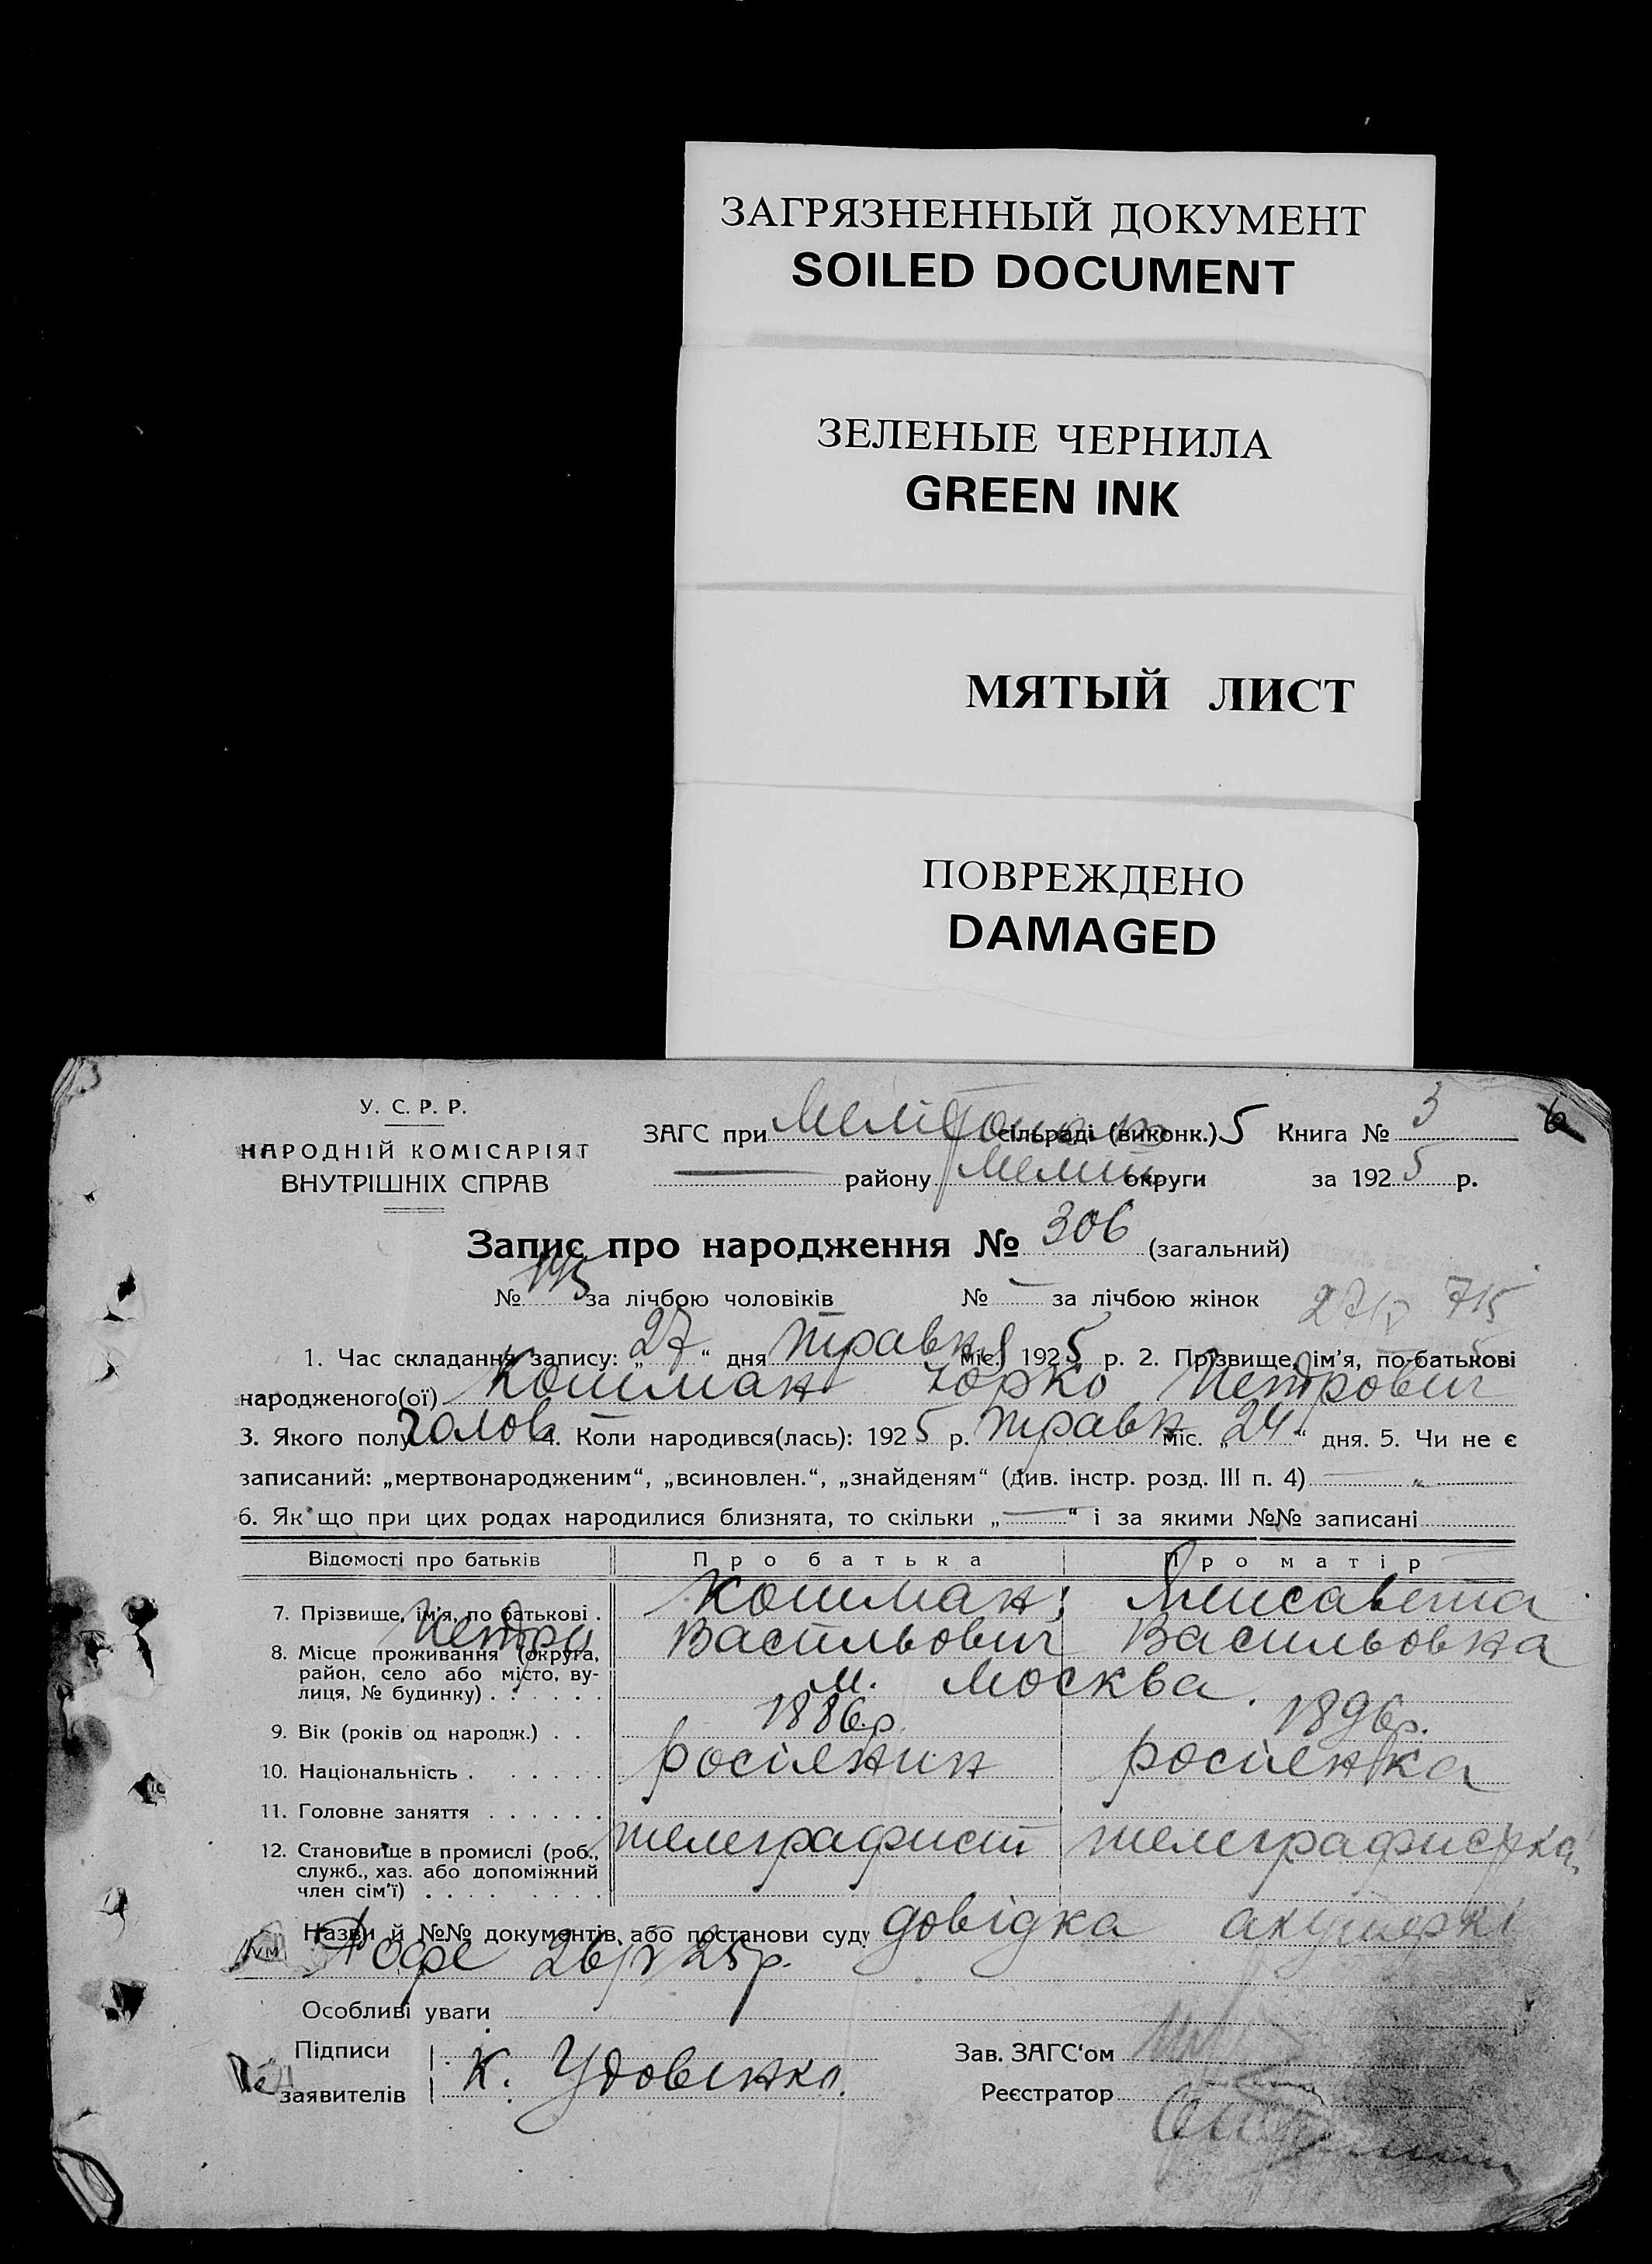 ЗАГРЯЗНЕННЫЙ ДОКУМЕНТ
SOILED DOCUMENT
ЗЕЛЕНЫЕ ЧЕРНИЛА
GREEN INK
МЯТЫЙ ЛИСТ
ПОВРЕЖДЕНО
DAMAGED
У. С. Р. Р.
НАРОДНІЙ КОМІСАРІЯТ
ВНУТРІШНІХ СПРАВ
ЗАГС при сільраді (виконк.) 5 Книга № 3 6
району Мелит округи за 1925 р.
Запис про народження № 306 (загальний)
№ за лічбою чоловіків № — за лічбою жінок 715
1. Час складання запису: „27“ дня травня міс. 1925 р. 2. Прізвище, ім'я, по-батькові
народженого(ої) Кошман Юрко Петрович
3. Якого полу чолов 4. Коли народився(лась): 1925 р. травн міс. „24“ дня. 5. Чи не є
записаний: „мертвонародженим“, „всиновлен.“, „знайденям“ (див. інстр. розд. III п. 4) — „ —
6. Як що при цих родах народилися близнята, то скільки „—“ і за якими №№ записані
Відомості про батьків Про батька Про матір
7. Прізвище, ім'я, по батькові . Кошман Єлисавета
Петро Васильович Васильовна
8. Місце проживання (округа,
район, село або місто, ву-
лиця, № будинку) . . . . . м. Москва.
9. Вік (років од народж.) . . 1886р. 1896р.
10. Національність . . . . . росіянин росіянка
11. Головне заняття . . . . . .
12. Становище в промислі (роб., телеграфист телеграфистка
служб., хаз. або допоміжний
член сім'ї) . . . . . . . .
Назви й №№ документів, або постанови суду довідка акушерки
Рофе 26/V 25р.
Особливі уваги
Підписи
заявителів К. Удовенко.
Зав. ЗАГС'ом
Реєстратор